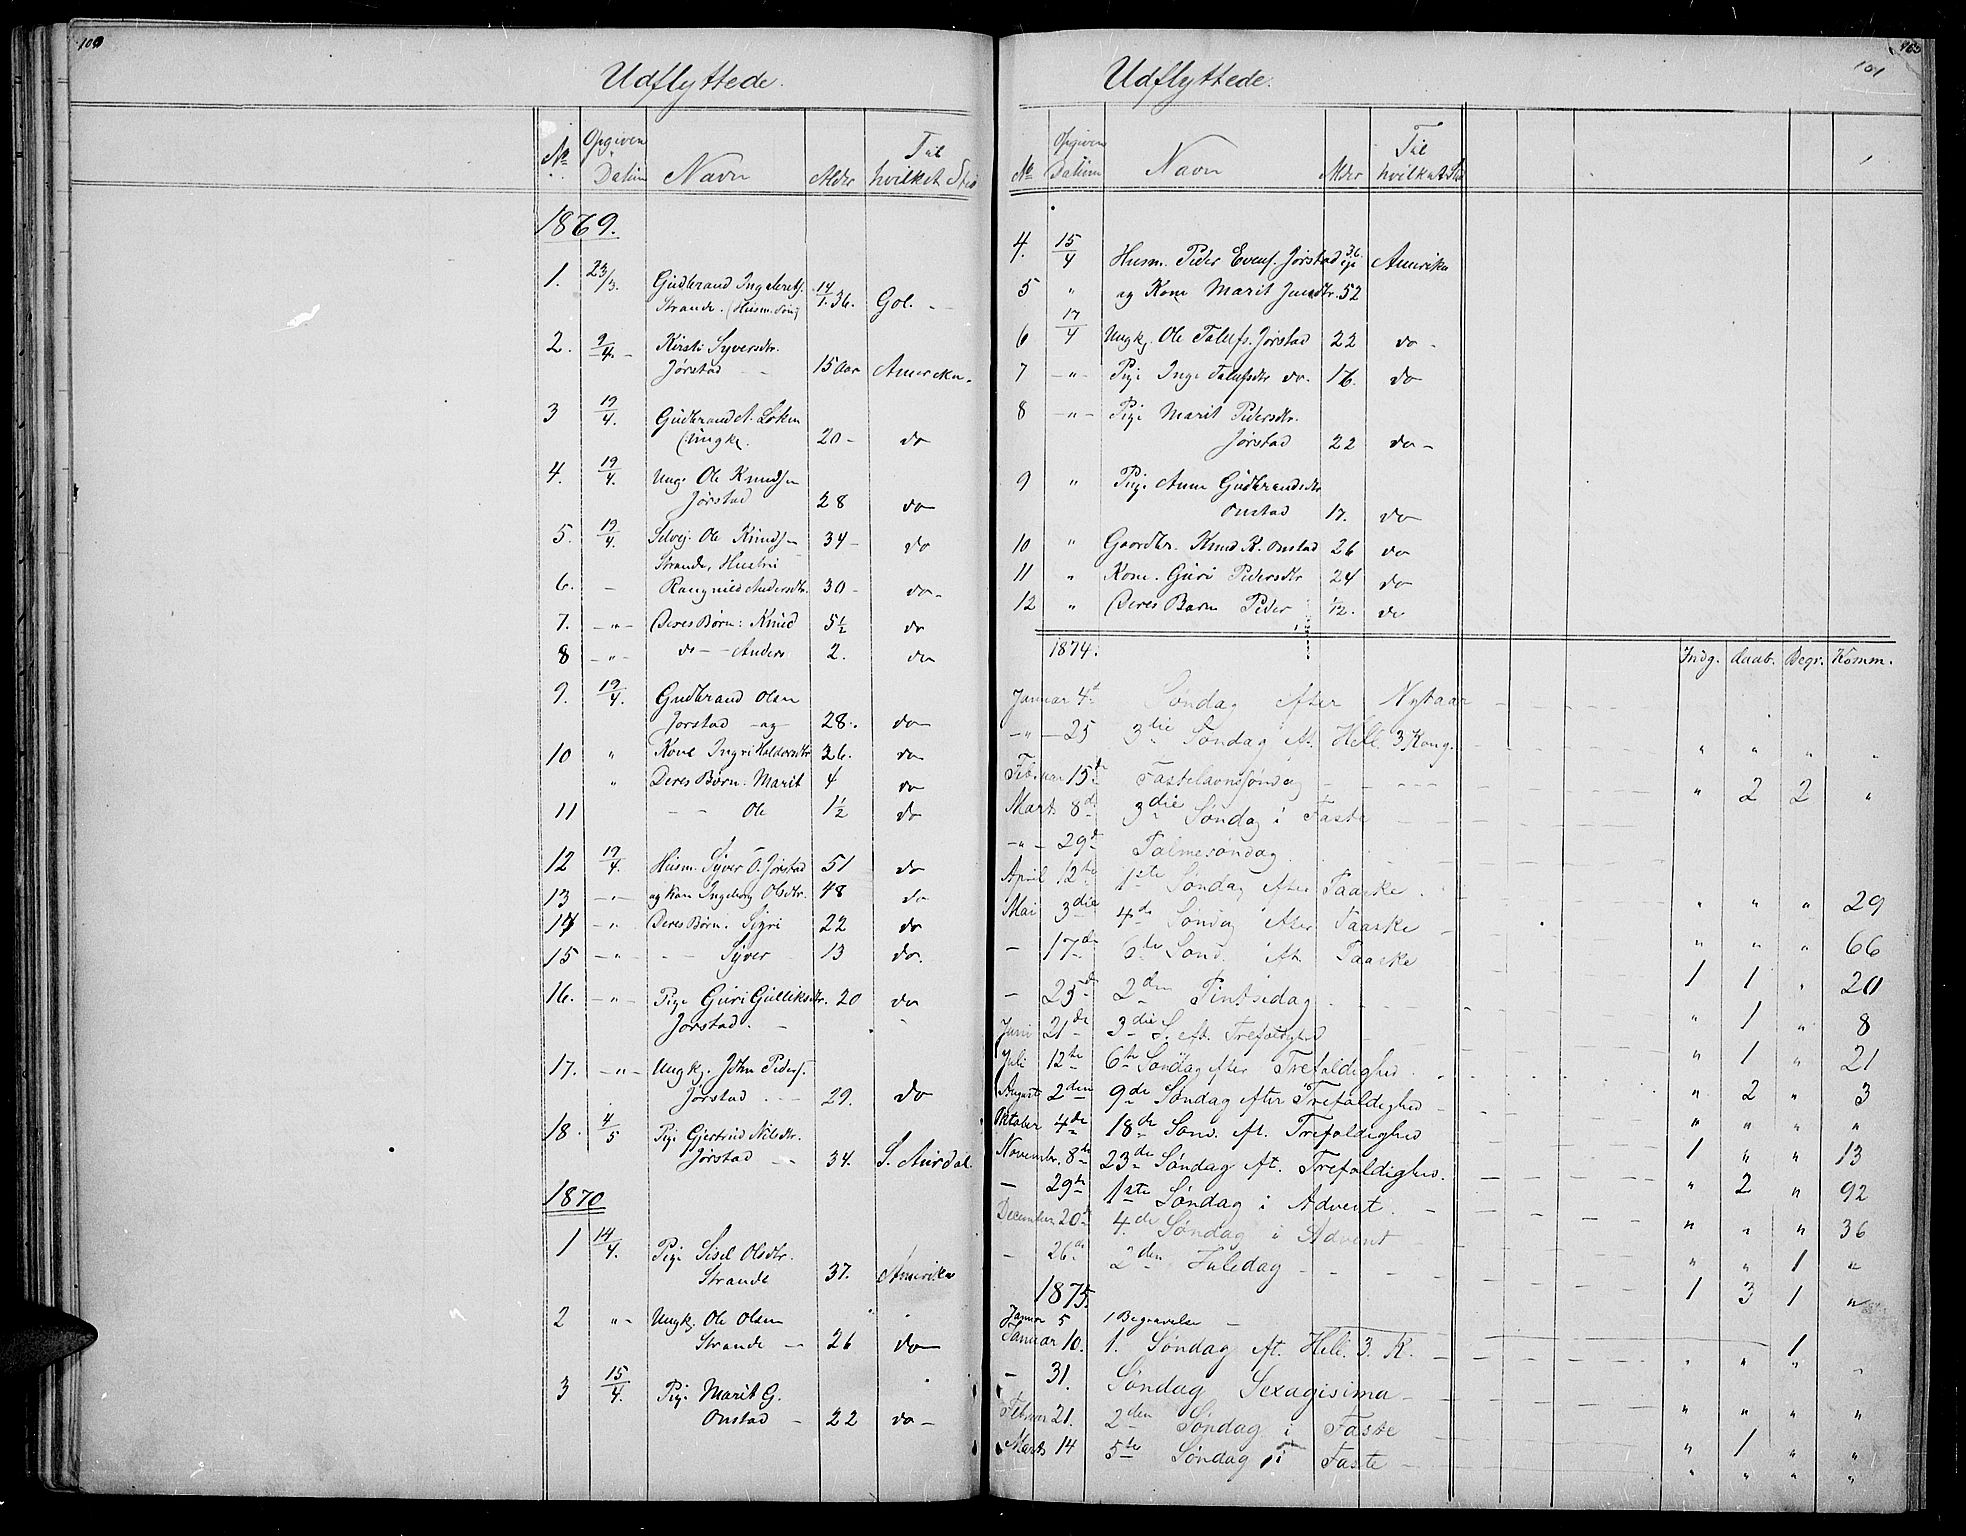 100
Udflyttede.
No Opgiven Datum Navn Alder Til hvilket Sted
1869.
1. 23/3. Gudbrand
Strande. (Husm. Søn) 14/1.36. Gol. -
2. 9/4. - Kirsti Syversdtr.
Jørstad - - 15 Aar Amerika.
3 19/4. Gudbrand A. Loken
(Ungk. 20 - do
4. 19/4. Ungk. Ole Knudsen
Jørstad 28 do
5. 19/4. Selvej. Ole Knudsen 34 - do
Strande, Hustru
6. - Rangnild Andersdtr. 30 - do -
7. - " - Deres Børn: Knud 5 1/2 do
8 - " - do - - Anders 2. do
9. 19/4. Gudbrand Olsen
Jorstad - og - 28 - do
10 " Kone Ingri Haldorsdtr 26. do
" Deres Børn. Marit 4 do
11 - - Ole 1 1/2 do
12 19/4. Husm. Syver O. Jørstad 51 do
13 - " - og Kone Ingeborg Olsdtr. 48 do
14 - " Deres Børn. Sigri 22 do
15 - " - - - Syver 13 do.
16. - " - Pige Guri Gulliksdtr. 20 do
Jorstad. -
17. - " - Ungk. John Peders.
Jørstad . - - 29. do
18. 4/5 Pige Gjertrud Nilsdtr.
Jørstad - - 34. S. Aurdal.
1870
1 14/4. Pige Sisel Olsdtr.
Strande 37. Amerika
2 " - Ungk. Ole Olsen
Strande - 26 do
3 15/4. Pige Marit G.
Onstad - 22 do -
101
Udflyttede.
No Opgiven Datum Navn Alder Til hvilket Sted
4. 15/4 Husm. Peder Evens. Jørstad 36 Amerika
5 " og Kone Marit 52
6 17/4 Ungk. Ole Tolefs. Jørstad 22 do -
7 - " - Pige Inge Tolefsdtr do. 16. do
8 - " - Pige Marit Pedersdtr.
Jørstad 22 do -
9 " Pige Anne Gudbrandsdtr
Onstad 17. do
10 " Gaardbr. Knud K. Onstad 26 do
11 " Kone. Guri Pedersdtr 24 do
12 " Deres Barn Peder 1/12. do
1874. Indg. Daab. Begr. Komm.
Januar 4de Søndag efter Nytaar - - - - -
- " - 25 3die Søndag eft. Hell. 3 Kong. - " " " "
Februar 15de Fastelavnssøndag - - - - " 2 2 "
Mart. 8de 3die Søndag i Faste
- " - 29de Palmesøndag.
April 12te 1ste Søndag efter Paaske. " " " 29
Mai 3die 4de Søndag efter Paaske - " " " 66
- 17de 6te Sønd. eft. Paaske 1 1 " 20
- 25de 2den Pintsedag. " 1 " 8
Juni 21de 3die S. eft. Trefoldighed " 1 " 21
Juli 12te 6te Søndag efter Trefoldighed. " 2 " 3
August 2den 9de Søndag efter Trefoldighed - " " " "
Oktober 4de 18de Sønd. eft. Trefoldighed 1 " " 13
Novembr. 8de 23de Søndag eft. Trefoldighed. " 2 " 92
- 29de 1ste Søndag i Advent. - " " " 36
December 20de 4de Søndag i Advent - " " 1 "
- 26de 2den Juledag - - - 1 3 1 "
1875.
Januar 5 1 Begravelse - 1
Januar 10. 1. Søndag eft. Hell. 3. K. - " " " -
- 31. Søndag Sexagisima - " " " "
Februar 21. 2den Søndag i Faste " 1 " "
Marts 14 5te Søndag i Faste - " " " "